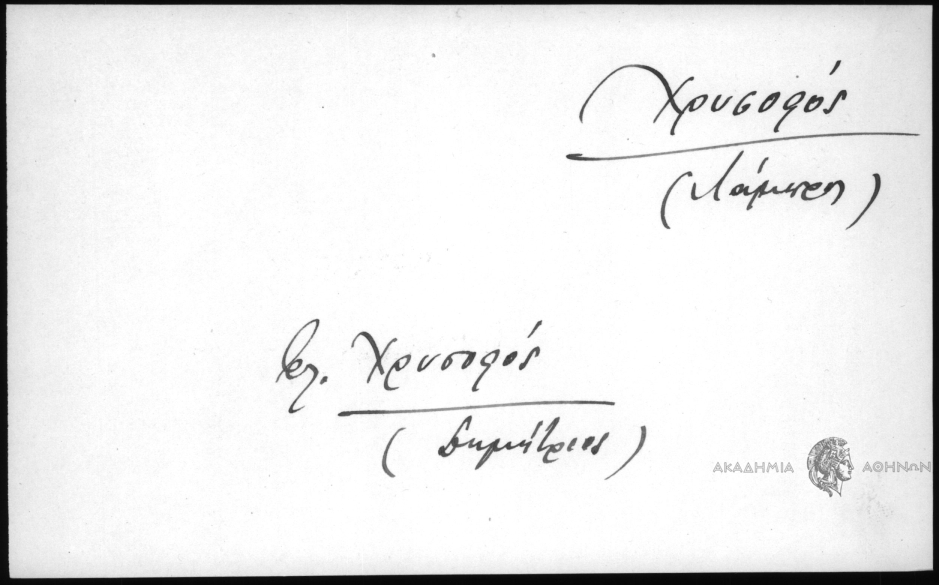 Χρυσοφός
(Λάμπρος)
βλ. Χρυσοφός
(Δημήτριος)
ΑΚΑΔΗΜΙΑ ΑΘΗΝΩΝ